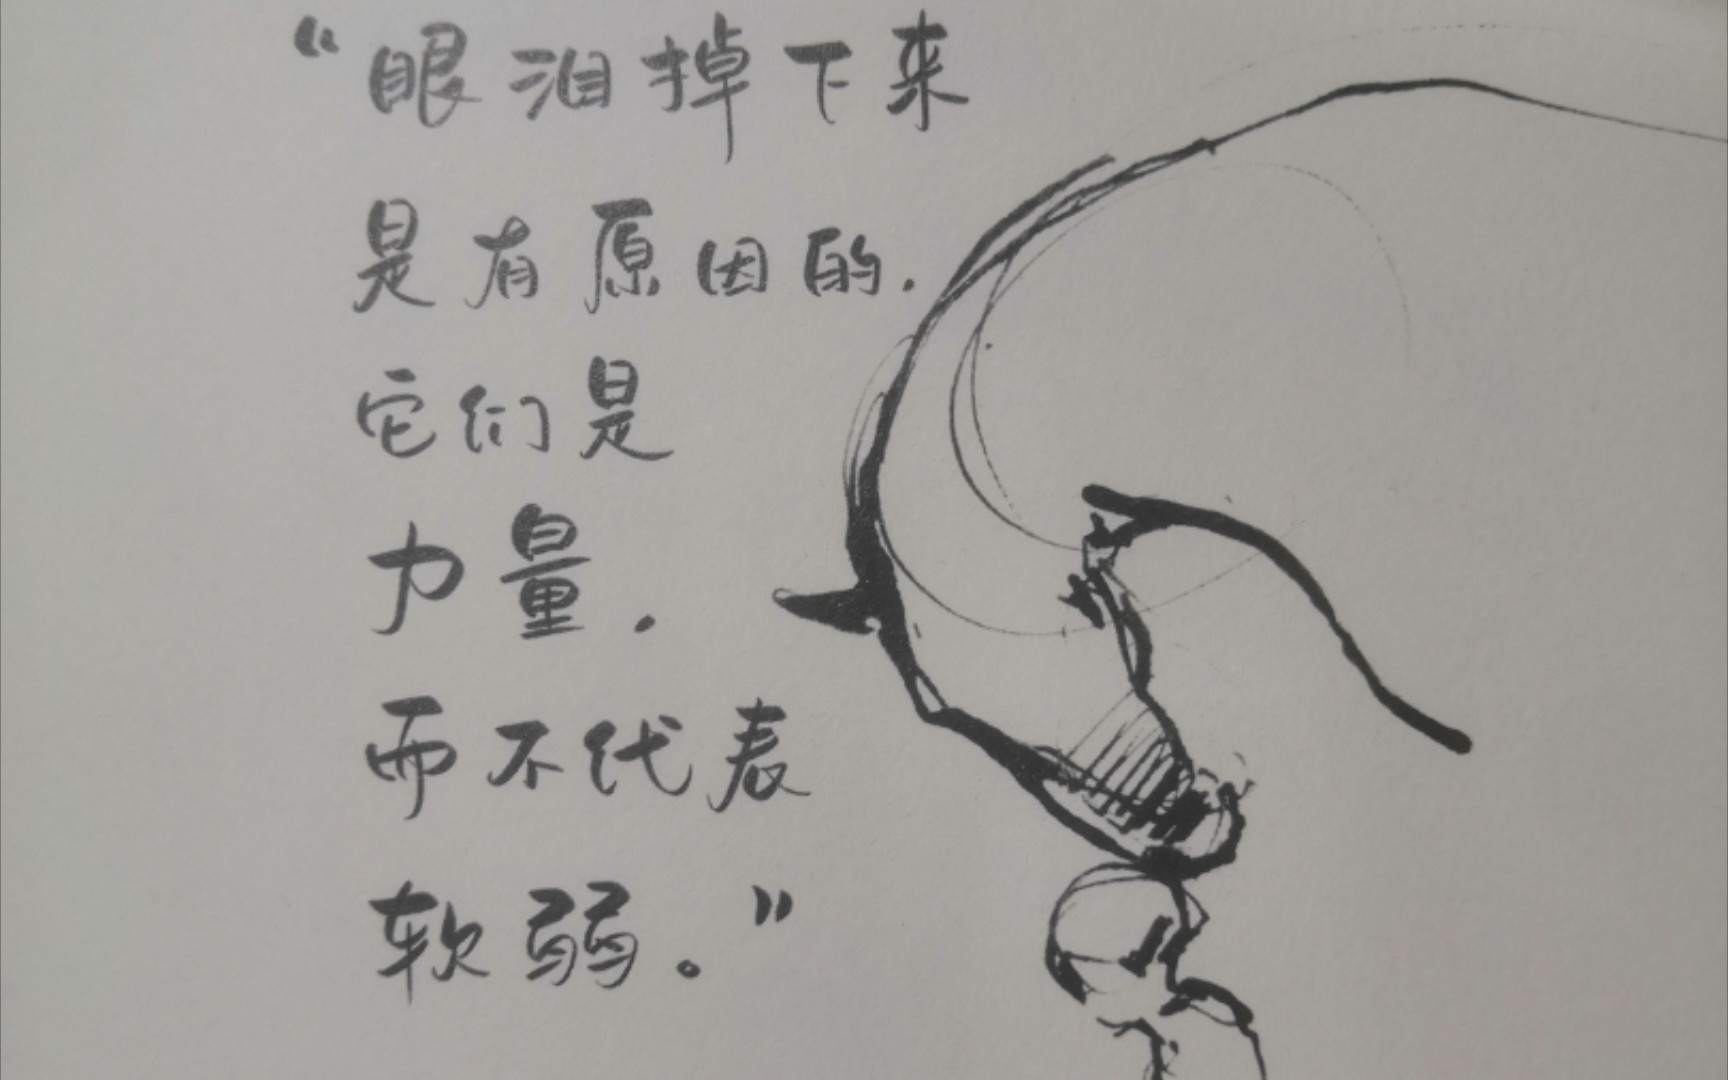 “眼泪掉下来
是有原因的.
它们是
力量.
而不代表
软弱。”